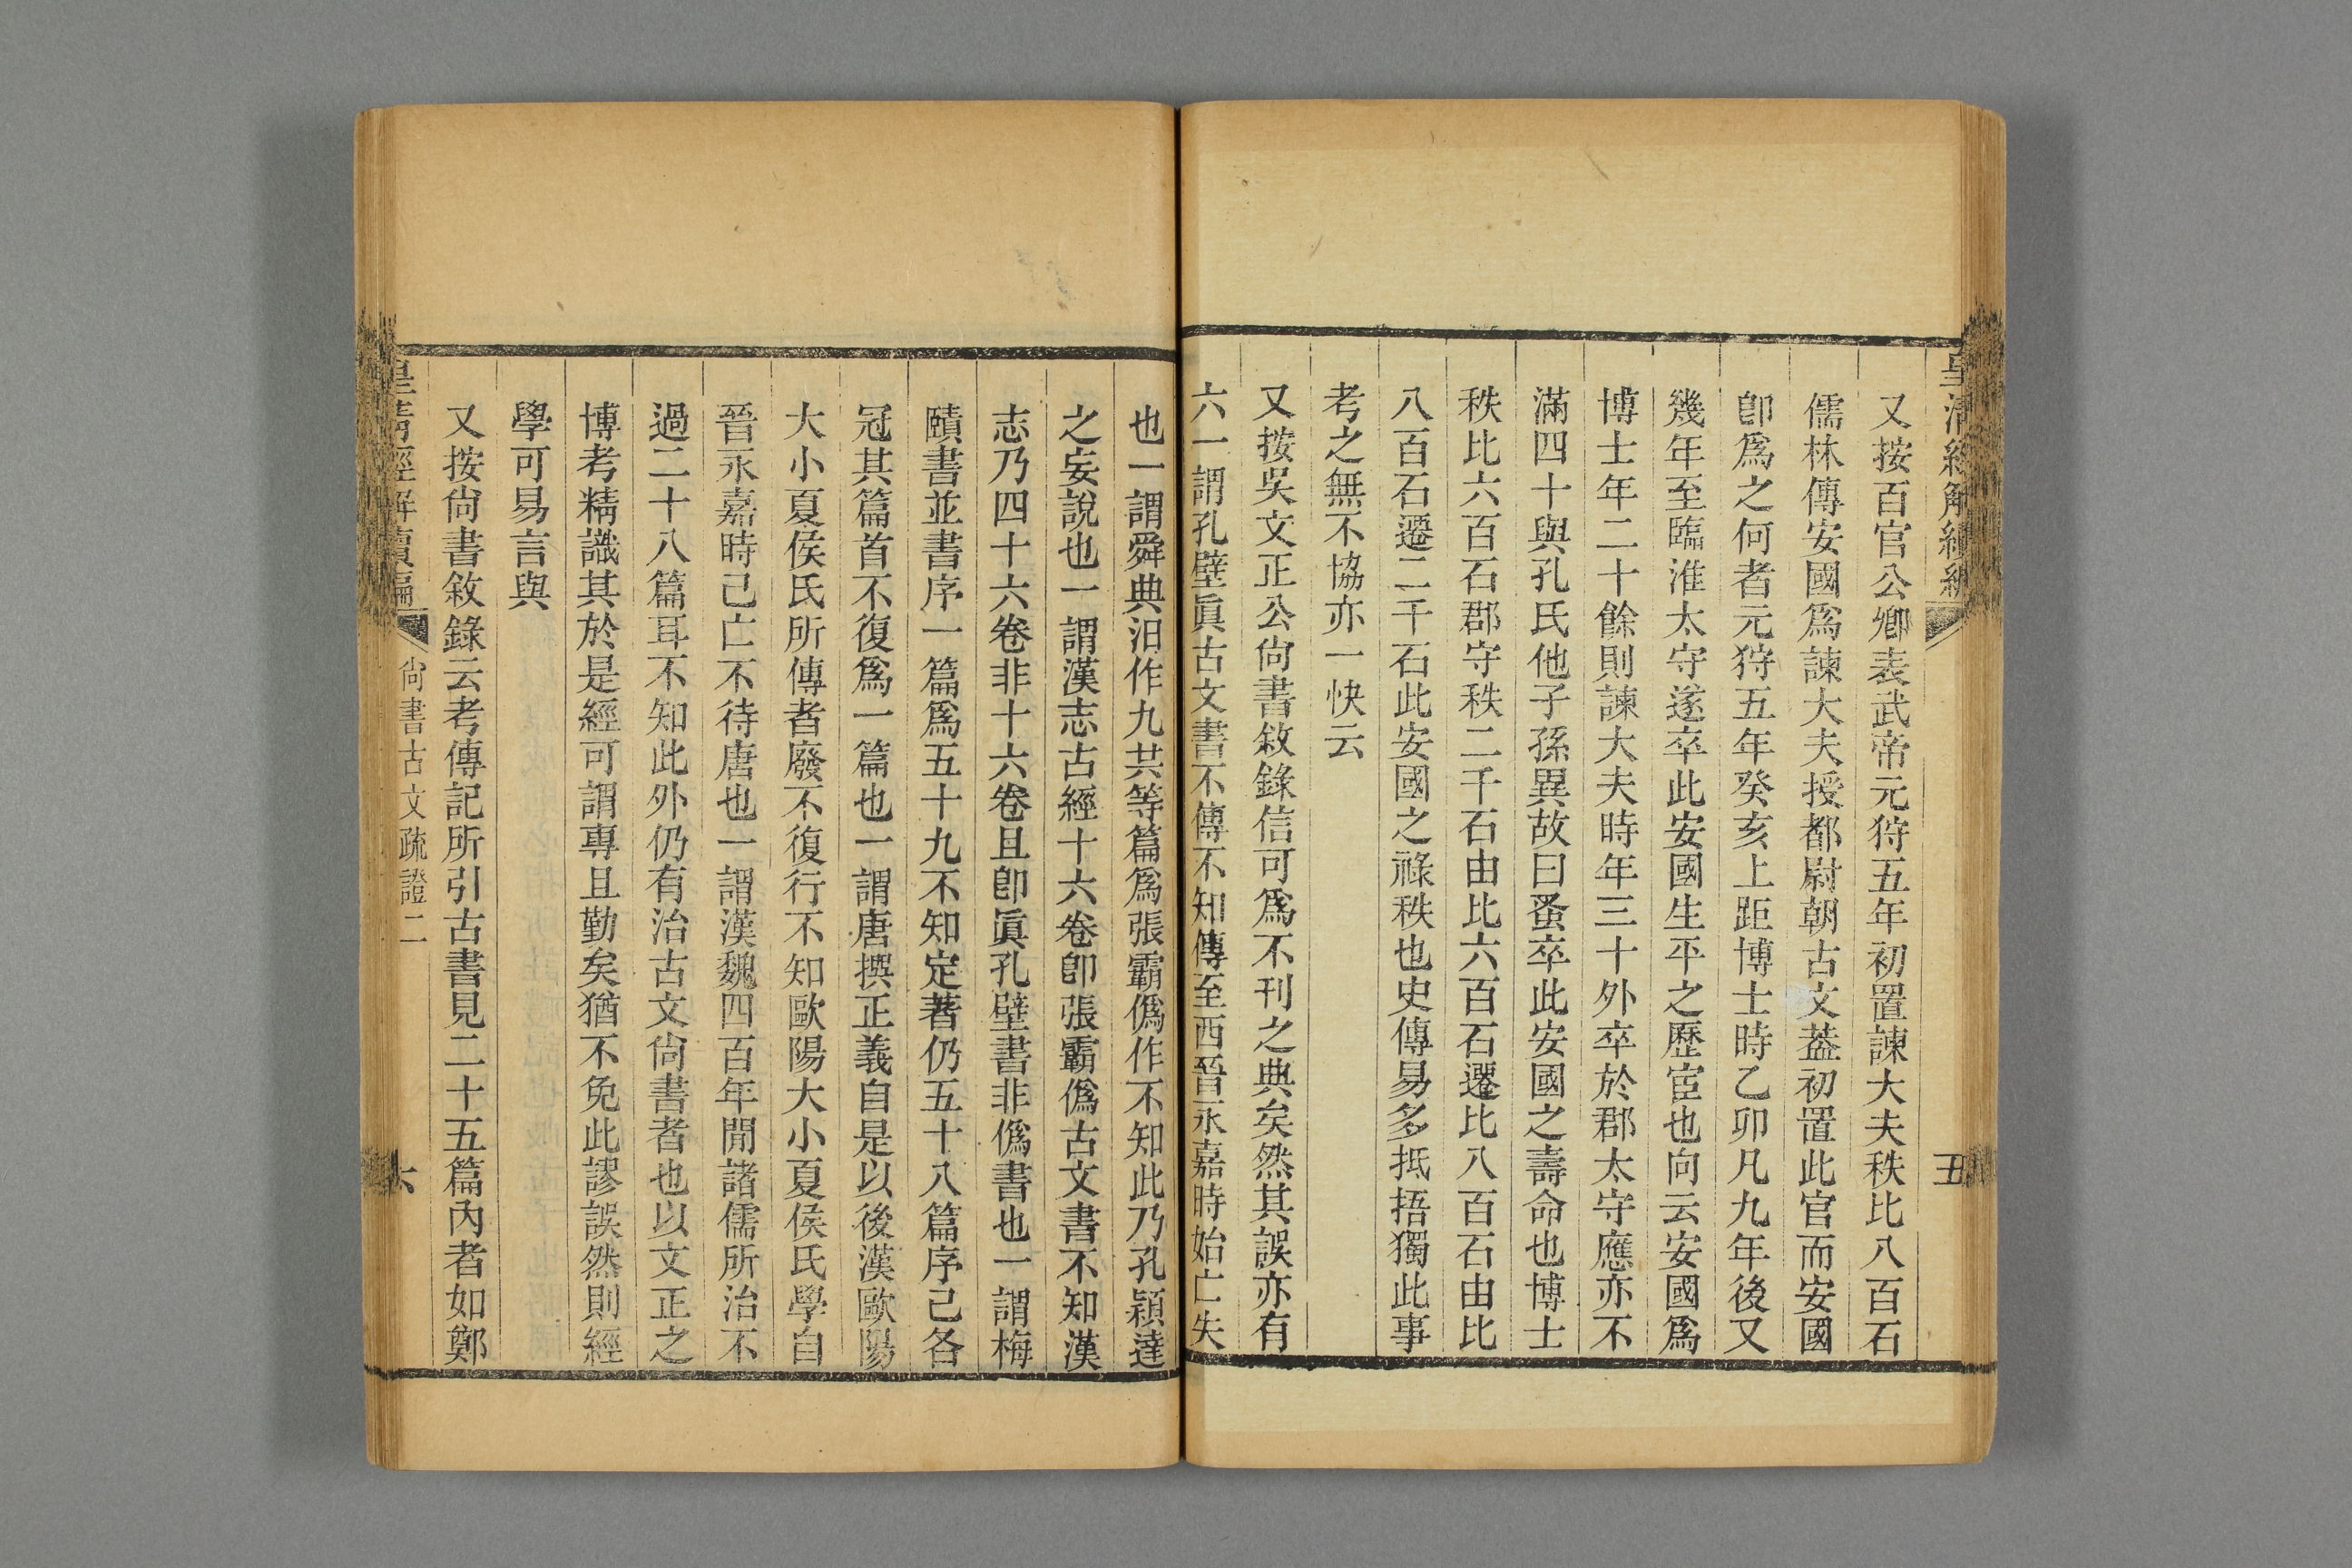 皇清經解續編
五
又按百官公卿表武帝元狩五年初置諫大夫秩比八百石
儒林傳安國爲諫大夫授都尉朝古文葢初置此官而安國
卽爲之何者元狩五年癸亥上距博士時乙卯凡九年後又
幾年至臨淮太守遂卒此安國生平之歷宦也向云安國爲
博士年二十餘則諫大夫時年三十外卒於郡太守應亦不
滿四十與孔氏他子孫異故曰蚤卒此安國之壽命也博士
秩比六百石郡守秩二千石由比六百石遷比八百石由比
八百石遷二千石此安國之祿秩也史傳易多抵捂獨此事
考之無不協亦一快云
又按吳文正公尙書敘錄信可爲不刊之典矣然其誤亦有
六一謂孔壁眞古文書不傳不知傳至西晉永嘉時始亡失
也一謂舜典汨作九共等篇爲張霸僞作不知此乃孔穎達
之妄說也一謂漢志古經十六卷卽張霸僞古文書不知漢
志乃四十六卷非十六卷且卽眞孔壁書非僞書也一謂梅
賾書並書序一篇爲五十九不知定著仍五十八篇序己各
冠其篇首不復爲一篇也一謂唐撰正義自是以後漢歐陽
大小夏侯氏所傳者廢不復行不知歐陽大小夏侯氏學自
晉永嘉時己亡不待唐也一謂漢魏四百年閒諸儒所治不
過二十八篇耳不知此外仍有治古文尙書者也以文正之
博考精識其於是經可謂專且勤矣猶不免此謬誤然則經
學可易言與
又按尙書敘錄云考傳記所引古書見二十五篇內者如鄭
皇清經解續編
尙書古文疏證二
六